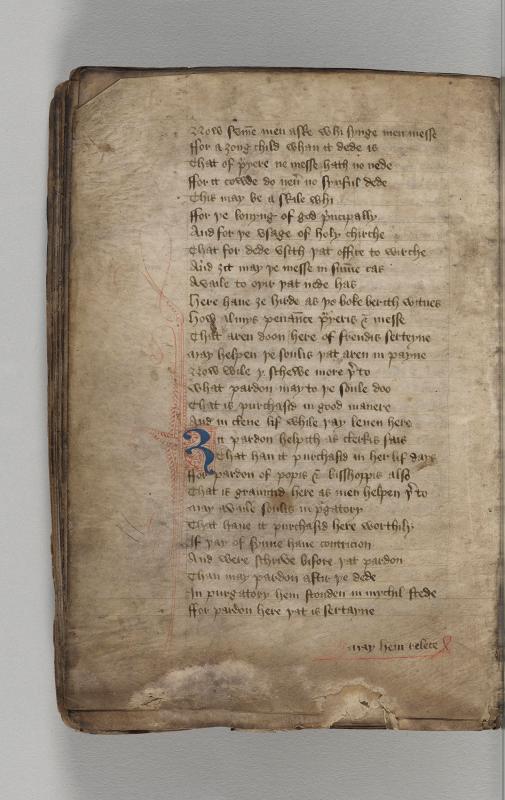 Now sum̅e men aske whi synge men messe
ffor a ȝong child whan it dede is
That of p̃yere ne messe hath no nede
ffor it cowde do neu̅ no synful dede
This may be a skile whi
ffor þe louyng of god p̃ncipally
And for þe vsage of holy chirche
That for dede vsith þat office to wirche
And ȝit may þe messe in sum̅e cas
Availe to oþir þat nede has
Here haue ȝe herde as þe boke berith witnes
How almys penau̅ce p̃yeris & messe
That aren doon here of frendis serteyne
may helpen þe soulis þat aren in payne
Now wile y schewe more þ̃to
What pardon may to þe soule doo
That is purchasid in good manere
And in clene lif while þay leuen here
ȝit pardon helpith as clerkis sais
That han it purchasid in her lif days
ffor pardon of popis & bisshoppis also
That is graunted here as men helpen þ̃to
may availe soulis in p̃gatory
That haue it purchasid here worthily
If þay of synne haue contricion
And were schriue bifore þat pardon
Than may pardon aftir þe dede
In purgatory hem stonden in mychil stede
ffor pardon here þat is sertayne
may hem relece